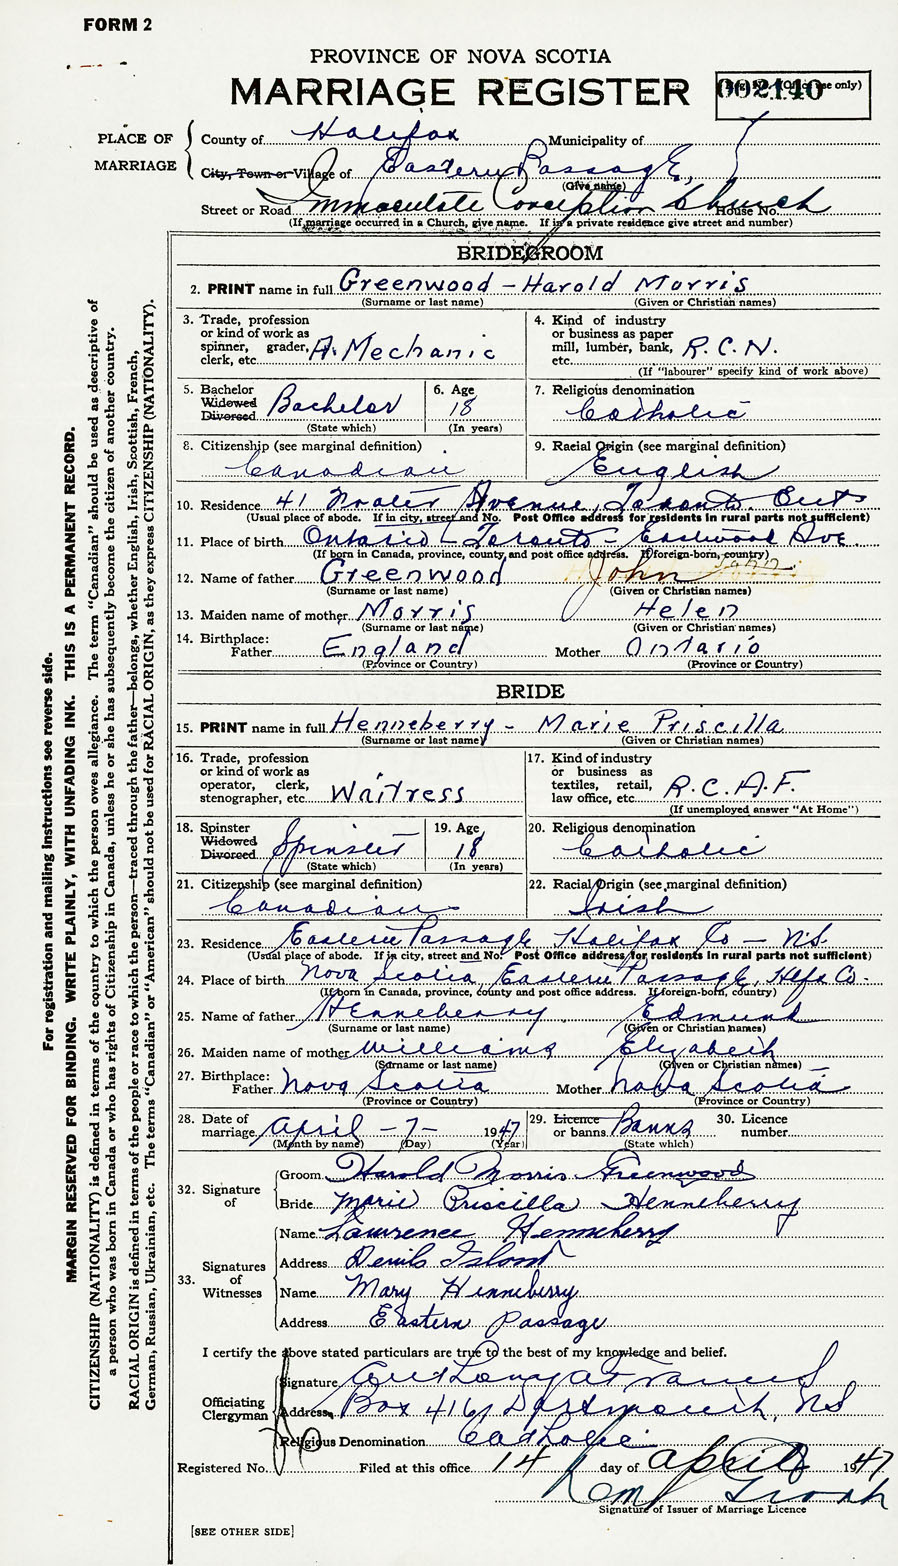 FORM 2
PROVINCE OF NOVA SCOTIA
MARRIAGE REGISTER
002140
(Office use only)
PLACE OF MARRIAGE
County of Halifax Municipality of
City, Town or Village of Eastern Passage,
(Give name)
Street or Road Immaculate Conception Church House No.
(If marriage occurred in a Church, give name. If in a private residence give street and number)
BRIDEGROOM
2. PRINT name in full Greenwood - Harold Morris
(Surname or last name) (Given or Christian names)
3. Trade, profession or kind of work as spinner, grader, clerk, etc. A. Mechanic
4. Kind of industry or business as paper mill, lumber, bank, etc. R.C.N.
(If "labourer" specify kind of work above)
5. Bachelor Widowed Divorced Bachelor
(State which)
6. Age 18
(In years)
7. Religious denomination
Catholic
8. Citizenship (see marginal definition)
Canadian
9. Racial Origin (see marginal definition)
English
10. Residence 41 Avenue, Toronto. Ont
(Usual place of abode. If in city, street and No. Post Office address for residents in rural parts not sufficient)
11. Place of birth Ontario - Toronto - Eastwood Ave.
(If born in Canada, province, county and post office address. If foreign-born, country)
12. Name of father Greenwood John
(Surname or last name) (Given or Christian names)
13. Maiden name of mother Morris Helen
(Surname or last name) (Given or Christian names)
14. Birthplace:
Father England Mother Ontario
(Province or Country) (Province or Country)
BRIDE
15. PRINT name in full Henneberry - Marie Priscilla
(Surname or last name) (Given or Christian names)
16. Trade, profession or kind of work as operator, clerk, stenographer, etc. Waitress
17. Kind of industry or business as textiles, retail, law office, etc. R.C.A.F.
(If unemployed answer "At Home")
18. Spinster Widowed Divorced Spinster
(State which)
19. Age 18
(In years)
20. Religious denomination
Catholic
21. Citizenship (see marginal definition)
Canadian
22. Racial Origin (see marginal definition)
Irish
23. Residence Eastern Passage Halifax Co - N.S.
(Usual place of abode. If in city, street and No. Post Office address for residents in rural parts not sufficient)
24. Place of birth Nova Scotia, Eastern Passage, Hfx Co.
(If born in Canada, province, county and post office address. If foreign-born, country)
25. Name of father Henneberry Edmund
(Surname or last name) (Given or Christian names)
26. Maiden name of mother Williams Elizabeth
(Surname or last name) (Given or Christian names)
27. Birthplace:
Father Nova Scotia Mother Nova Scotia
(Province or Country) (Province or Country)
28. Date of marriage April - 7 - 1947
(Month by name) (Day) (Year)
29. Licence or banns Banns
(State which)
30. Licence number
32. Signature of
Groom Harold Morris Greenwood
Bride Marie Priscilla Henneberry
33. Signatures of Witnesses
Name Lawrence Henneberry
Address Devils Island
Name Mary Henneberry
Address Eastern Passage
I certify the above stated particulars are true to the best of my knowledge and belief.
Officiating Clergyman
Signature
Address Box 416, Dartmouth, NS
Religious Denomination Catholic
Registered No. Filed at this office 14 day of April 1947
Signature of Issuer of Marriage Licence
[SEE OTHER SIDE]
For registration and mailing instructions see reverse side.
MARGIN RESERVED FOR BINDING. WRITE PLAINLY, WITH UNFADING INK. THIS IS A PERMANENT RECORD.
CITIZENSHIP (NATIONALITY) is defined in terms of the country to which the person owes allegiance. The term "Canadian" should be used as descriptive of
a person who was born in Canada or who has rights of Citizenship in Canada, unless he or she has subsequently become the citizen of another country.
RACIAL ORIGIN is defined in terms of the people or race to which the person—traced through the father—belongs, whether English, Irish, Scottish, French,
German, Russian, Ukrainian, etc. The terms "Canadian" or "American" should not be used for RACIAL ORIGIN, as they express CITIZENSHIP (NATIONALITY).